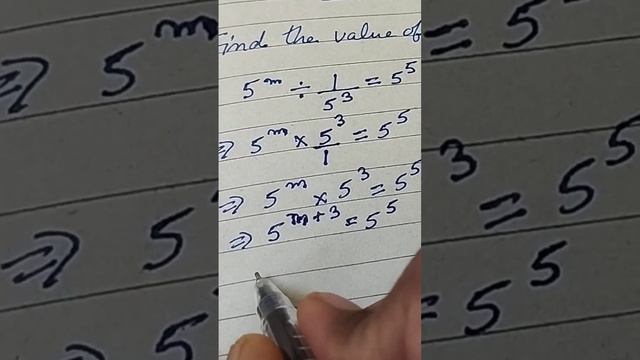 Find the value of
5^m ÷ 1/5^3 = 5^5
⇒ 5^m × 5^3/1 = 5^5
⇒ 5^m × 5^3 = 5^5
⇒ 5^m+3 = 5^5